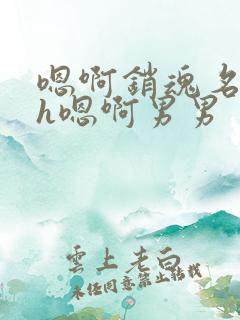 嗯啊銷魂名
h嗯啊男男
雲上老白
未经同意禁止转载